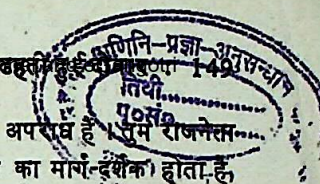 ढहती हुई दीवारें 149
पाणिनि-प्रज्ञा-अनुसन्धान
तिथी..............
पु०सं०..............
अपराध हैं । तुम राजनेता
का मार्ग-दर्शक होता है,